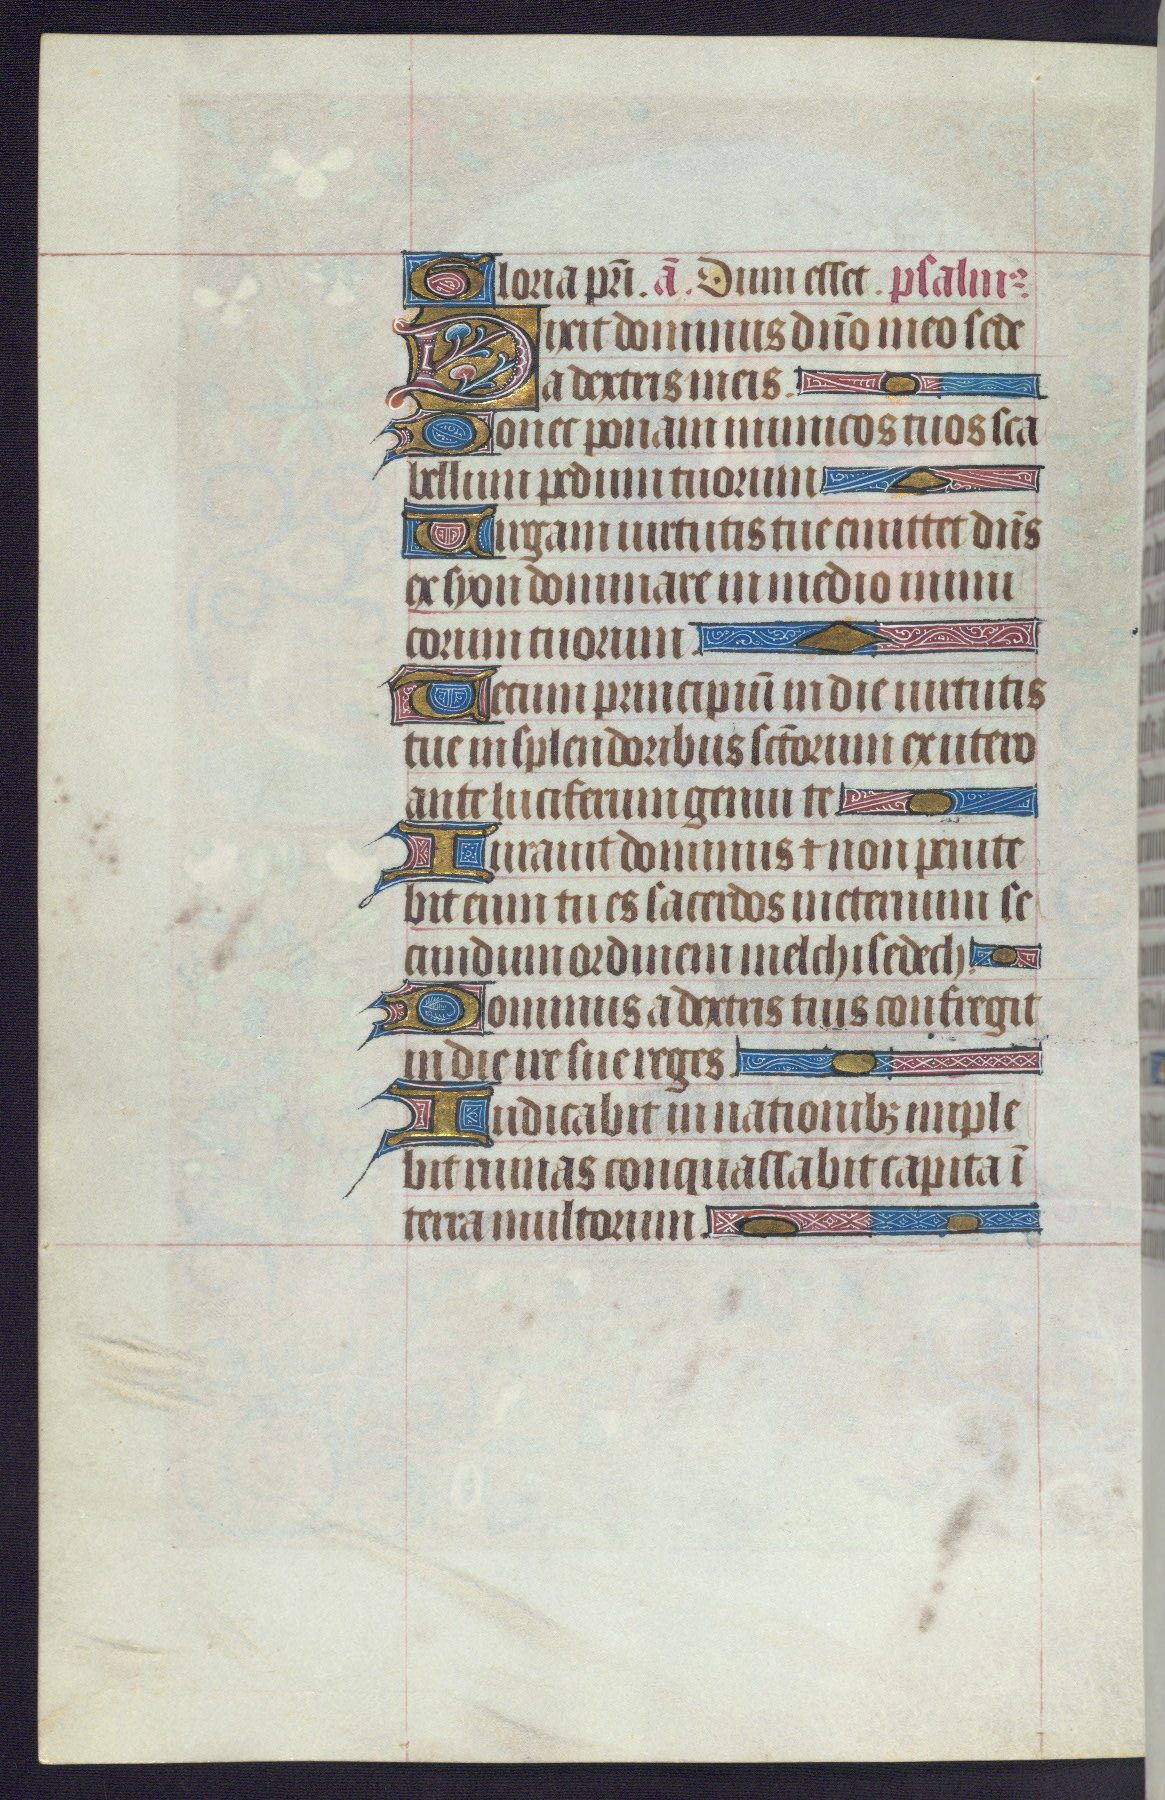 Gloria pr̄i. ā. Dum esset. psalm⁹
Dixit dominus dn̄o meo sede
a dextris meis.
Donec ponam inimicos tuos sca
bellum pedum tuorum
Uirgam uirtutis tue emittet dn̄s
ex syon dominare in medio inimi
corum tuorum.
Tecum principiū in die uirtutis
tue in splendoribus sc̄torum ex utero
ante luciferum genui te
Iurauit dominus ⁊ non penite
bit eum tu es sacerdos in eternum se
cundum ordinem melchisedech.
Dominus a dextris tuis confregit
in die ire sue reges.
Iudicabit in nationibꝫ imple
bit ruinas conquassabit capita ī
terra multorum.